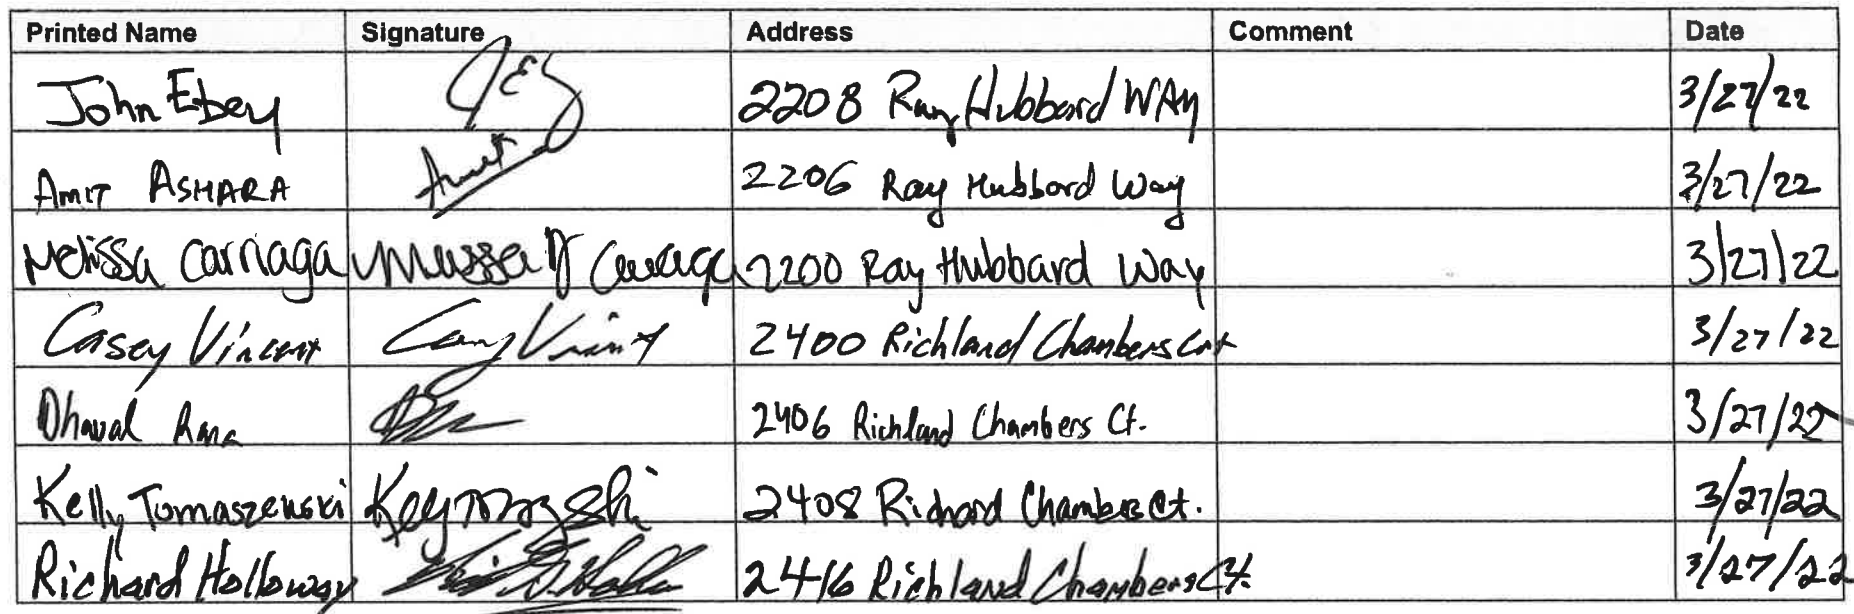 Printed Name Signature Address Comment Date
John Ebey JEby 2208 Ray Hubbard WAy 3/27/22
Amit ASHARA Amit 2206 Ray Hubbard Way 3/27/22
Melissa Carriaga Melissa Carriaga 2200 Ray Hubbard Way 3/27/22
Casey Vincent Casey Vincent 2400 Richland Chambers Crt 3/27/22
Dhaval Rana 2406 Richland Chambers Ct. 3/27/22
Kelly Tomaszewski 2408 Richard Chambers Ct. 3/27/22
Richard Holloway 2416 Richland Chambers Ct. 3/27/22